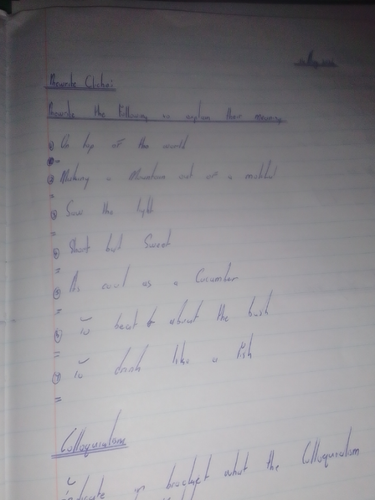 Rewrite Cliche:
Rewrite the Following to explain their meaning
① On top of the world
② Making a Mountain out of a molehill
③ Saw the light
④ Short but Sweet
⑤ As cool as a Cucumber
⑥ To beat about the bush
⑦ To drink like a fish
Colloquialisms
indicate in bracket what the Colloquialism